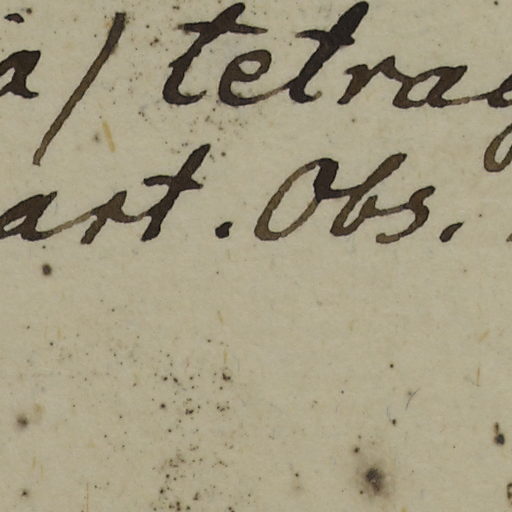 a/ tetrag
art. Obs.